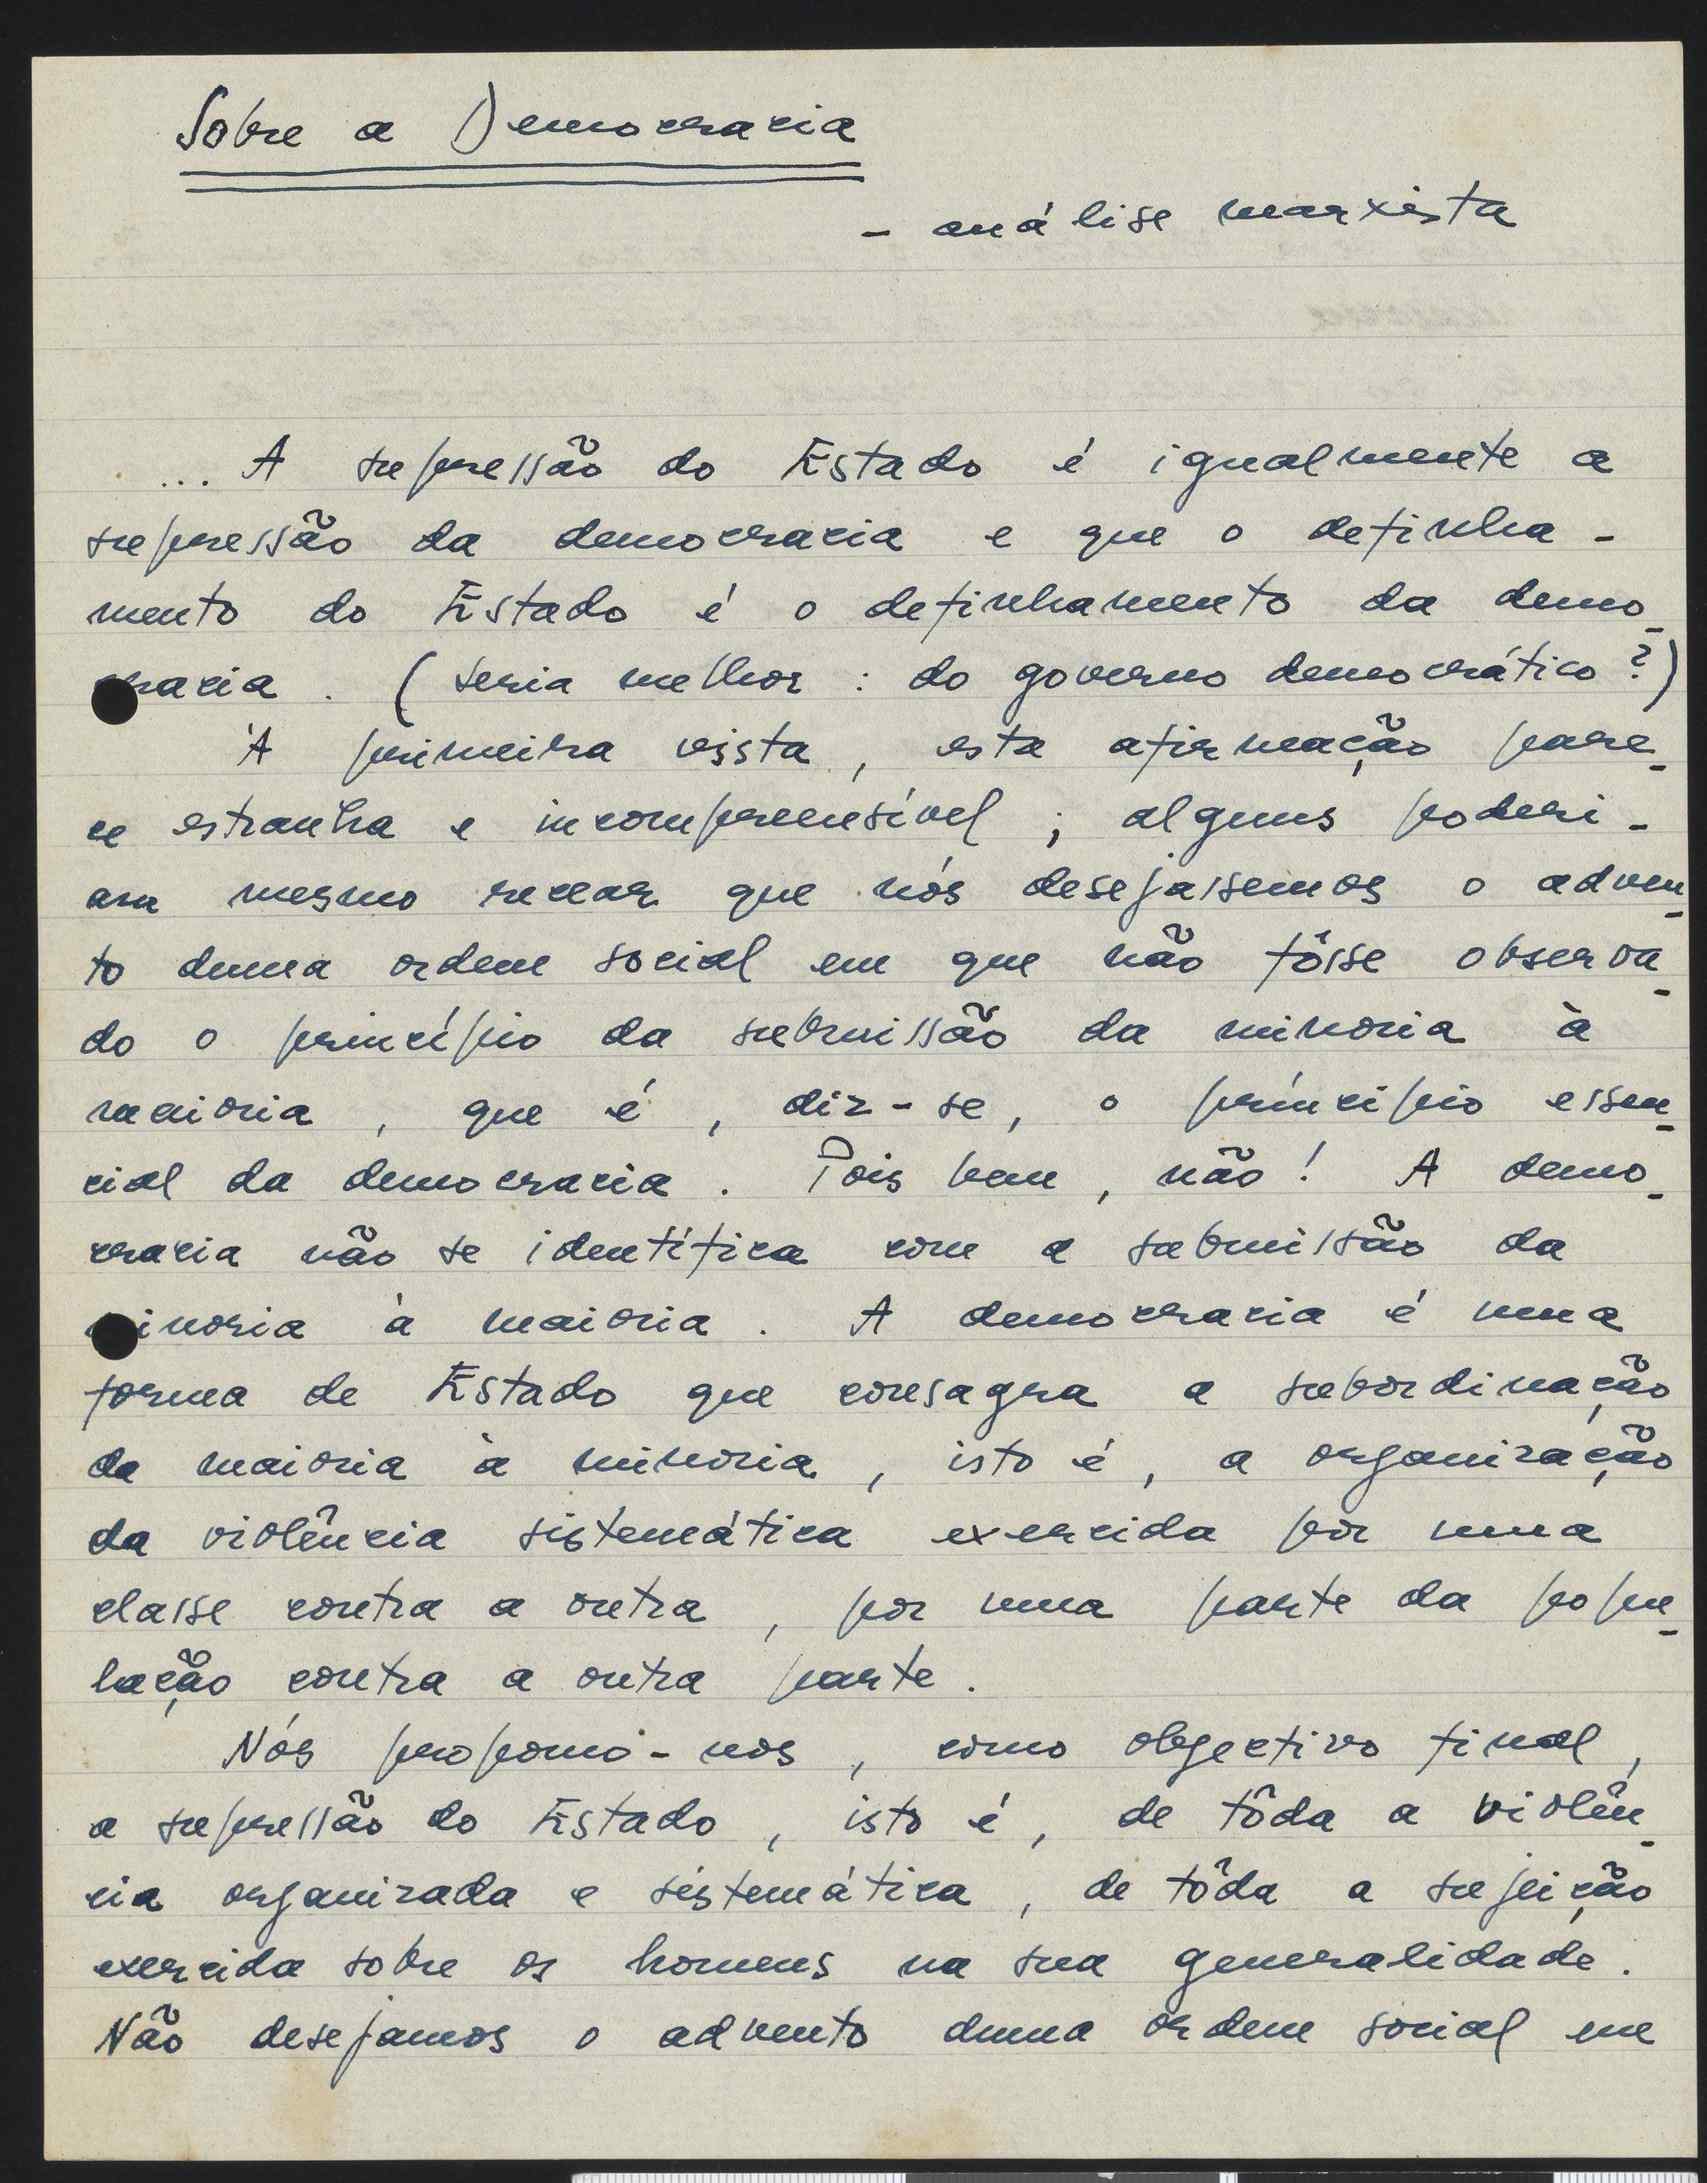 Sobre a Democracia
- análise marxista
... A supressão do Estado é igualmente a
supressão da democracia e que o definha-
mento do Estado é o definhamento da demo-
cracia. (seria melhor: do governo democrático?)
À primeira vista, esta afirmação pare-
ce estranha e incompreensível; alguns poderi-
am mesmo recear que nós desejassemos o adven-
to duma ordem social em que não fôsse observa-
do o princípio da submissão da minoria à
maioria, que é, diz-se, o príncipio essen-
cial da democracia. Pois bem, não! A demo-
cracia não se identifica com a submissão da
minoria à maioria. A democracia é uma
forma de Estado que consagra a subordinação
da maioria à minoria, isto é, a organização
da violência sistemática exercida por uma
classe contra a outra, por uma parte da popu-
lação contra a outra parte.
Nós propomo-nos, como objectivo final,
a supressão do Estado, isto é, de tôda a violên-
cia organizada e sistemática, de tôda a sujeição
exercida sobre os homens na sua generalidade.
Não desejamos o advento duma ordem social em